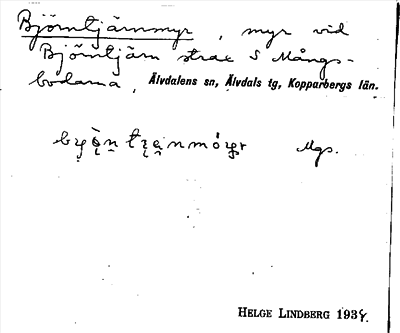 Björntjärnmyr, myr vid
Björntjärn strax S Mångs-
bodarna, Älvdalens sn, Älvdals tg, Kopparbergs län.
Mgs.
HELGE LINDBERG 1934.